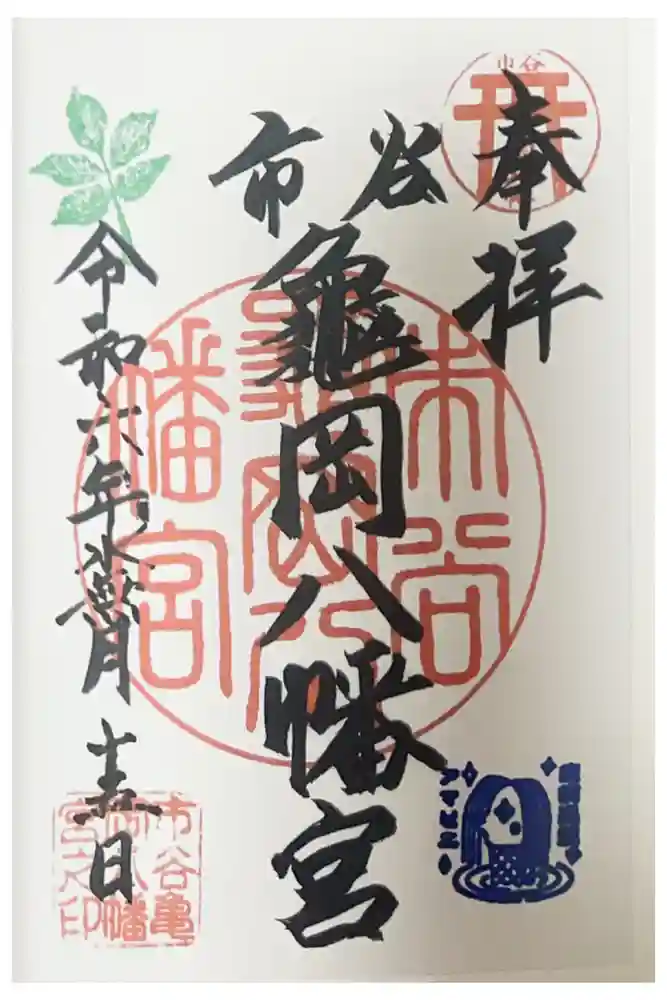 奉拝
市谷
市谷
龜岡八幡宮
市谷
亀岡八
幡宮
令和六年水無月
日
市谷亀
岡八幡
宮之印